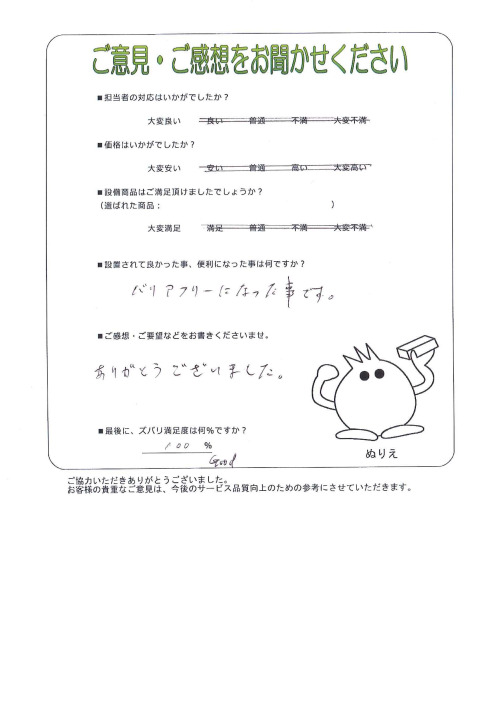 ご意見・ご感想をお聞かせください
■担当者の対応はいかがでしたか？
大変良い 良い 普通 不満 大変不満
■価格はいかがでしたか？
大変安い 安い 普通 高い 大変高い
■設備商品はご満足頂けましたでしょうか？
（選ばれた商品： ）
大変満足 満足 普通 不満 大変不満
■設置されて良かった事、便利になった事は何ですか？
バリアフリーになった事です。
■ご感想・ご要望などをお書きくださいませ。
ありがとうございました。
■最後に、ズバリ満足度は何%ですか？
100 %
Good
ぬりえ
ご協力いただきありがとうございました。
お客様の貴重なご意見は、今後のサービス品質向上のための参考にさせていただきます。